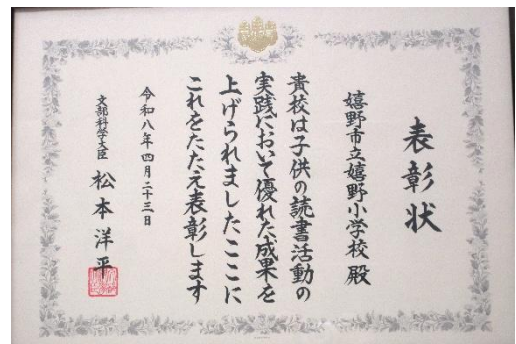 表彰状
嬉野市立嬉野小学校 殿
貴校は子供の読書活動の
実践において優れた成果を
上げられましたここに
これをたたえ表彰します
令和八年四月二十三日
文部科学大臣 松本洋平